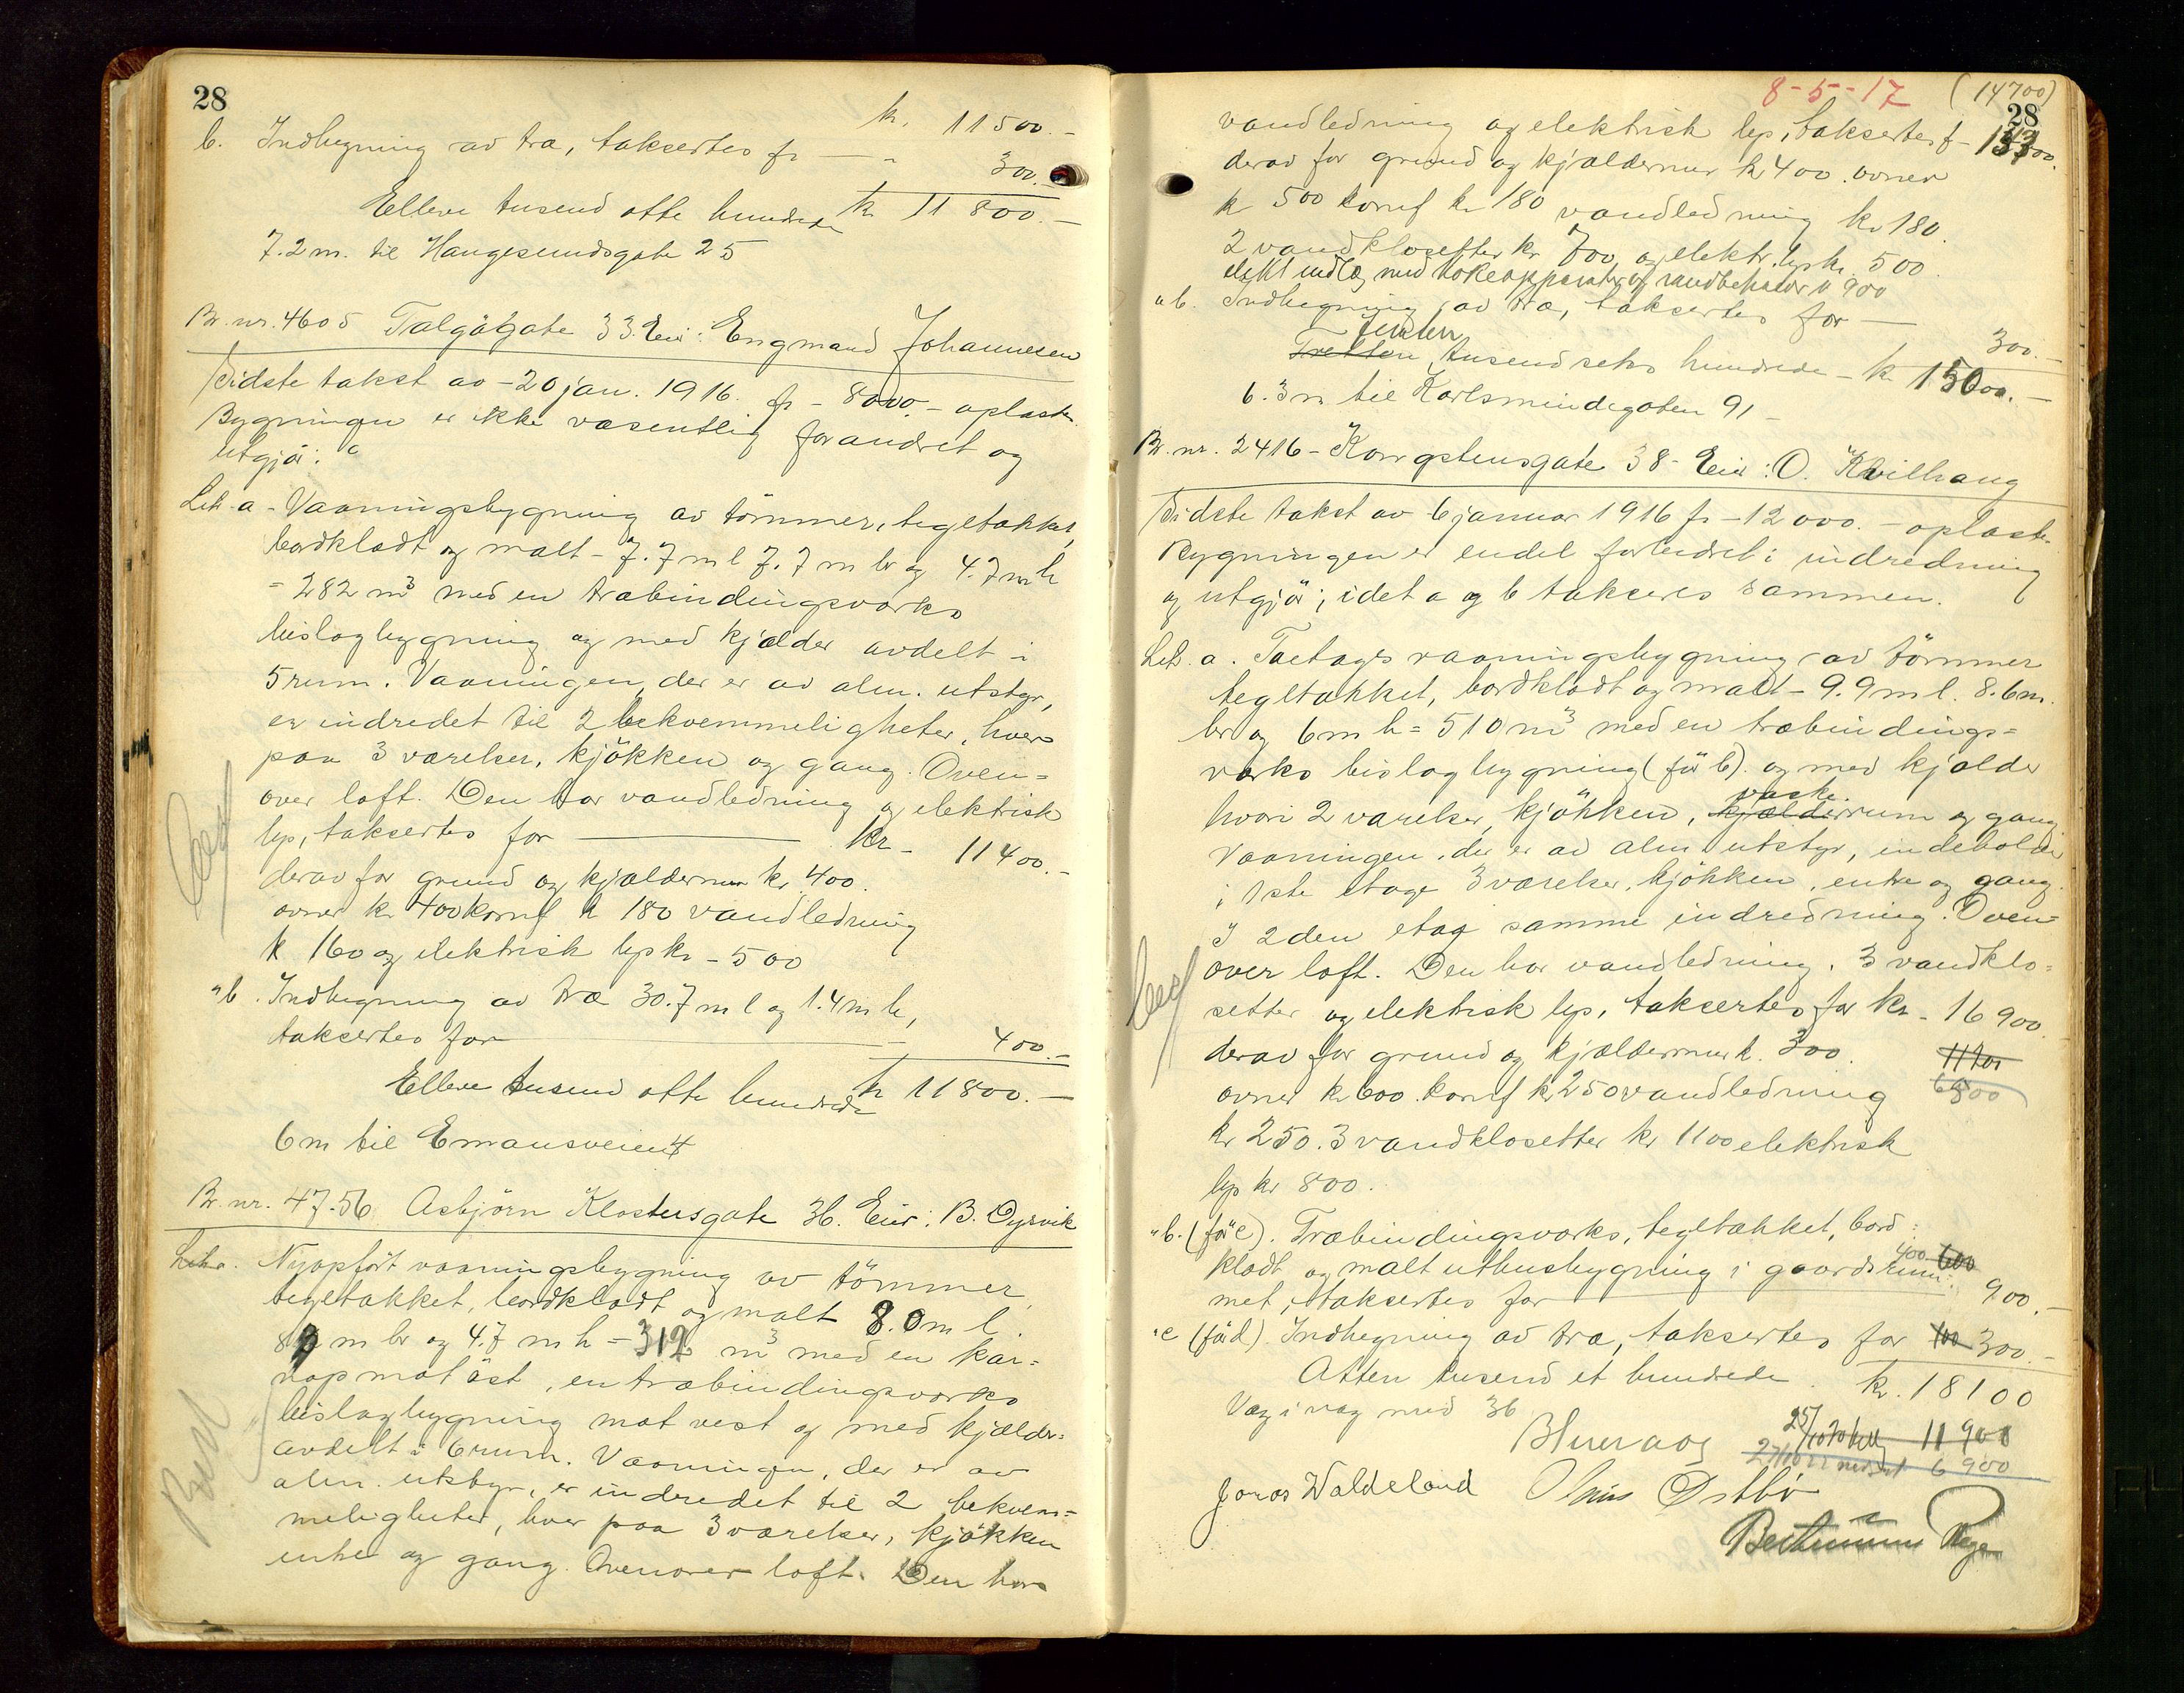 28
kr. 11500.-
b. Indhegning av træ, takseres fr — " 300.-
Elleve tusend otte hundrede kr 11800.-
7.2 m. til Haugesundsgate 25
Br. nr. 4605 Talgötgate 33. Eier: Engmand Johannesen
Sidste takst av - 20 jan. 1916. fr - 8000.- oplæste.
Bygningen er ikke væsentlig forandret og
utgjør:
Litr. a - Vaaningsbygning av tömmer, tegltækket,
bordklædt og malt - 7.7 m l 7.7 m br og 4.7 m h
= 282 m³ med en træbindingsverks
bislagbygning og med kjælder avdelt i
5 rum. Vaaningen, der er av alm. utstyr,
er indredet til 2 bekvemmeligheter, hver
paa 3 værelser, kjökken og gang. Oven=
over loft. Den har vandledning og elektrisk
lys, takseres for — kr - 11400.-
derav for grund og kjældermur kr. 400.
ovner kr 400 komf kr 180 vandledning
kr 160 og elektrisk lys kr - 500
" b. Indhegning av træ 30.7 m l og 1.4 m h,
takseres for — 400.-
Elleve tusend otte hundrede kr 11800.-
6 m til Emausveien 4
Br. nr. 4756 Asbjørn Klostersgate 36. Eier: B. Dyrvik
Litr a. Nyopført vaaningsbygning av tömmer,
tegltækket, bordklædt og malt 8.0 m l.
8 m br og 4.7 m h = 312 m³ med en kar=
nap mot öst, en træbindingsverks
bislagbygning mot vest og med kjælder=
avdelt i 6 rum. Vaaningen, der er av
alm. utstyr, er indredet til 2 bekvem=
meligheter, hver paa 3 værelser, kjökken
entre og gang. Ovenover loft. Den har
8-5-17 (14700)
28
vandledning og elektrisk lys, takseres f -
derav for grund og kjældermur kr 400. ovner
kr 500 komf kr 180 vandledning kr 180.
2 vandklosetter kr 700, og elektr. lys kr. 500.
elekt indlæg med kokeapparater og vandbeholder kr 900
" b. Indhegning av træ, takseres for — 300.-
femten
Tretten tusend seks hundrede - kr 15000.-
6.3 m til Karlsmindegaten 91 -
Br. nr. 2416 - Kongstensgate 38 - Eier: O. Kvilhaug
Sidste takst av 6 januar 1916 fr - 12000.- oplæste.
Bygningen er endel forandret i indredning
og utgjør, idet a og b takseres sammen.
Litr. a. Toetages vaaningsbygning av tömmer
tegltækket, bordklædt og malt - 9.9 m l. 8.6 m.
br og 6 m h = 510 m³ med en træbindings=
verks bislagbygning (før b) og med kjælder
vaske
hvori 2 værelser, kjökken, kjælderrum og gang
Vaaningen, der er av alm utstyr, indeholder
i 1ste etage 3 værelser, kjökken, entre og gang.
I 2den etag samme indredning. Oven=
over loft. Den har vandledning, 3 vandklo=
setter og elektrisk lys, takseres for kr - 16900.
derav for grund og kjældermur kr. 300.
ovner kr 600. komf kr 250 vandledning 6500
kr 250. 3 vandklosetter kr 1100 elektrisk
lys kr 800.
" b. (før c). Træbindingsverks, tegltækket, bord=
klædt og malt uthusbygning i gaardsrum= 400 600
met, takseres for — 900.-
" c (før d) Indhegning av træ, takseres for 100 300.-
Atten tusend et hundrede. kr. 18100
Væg i væg med 36
25/10 11900
6900
Jonas Waldeland Ostbø